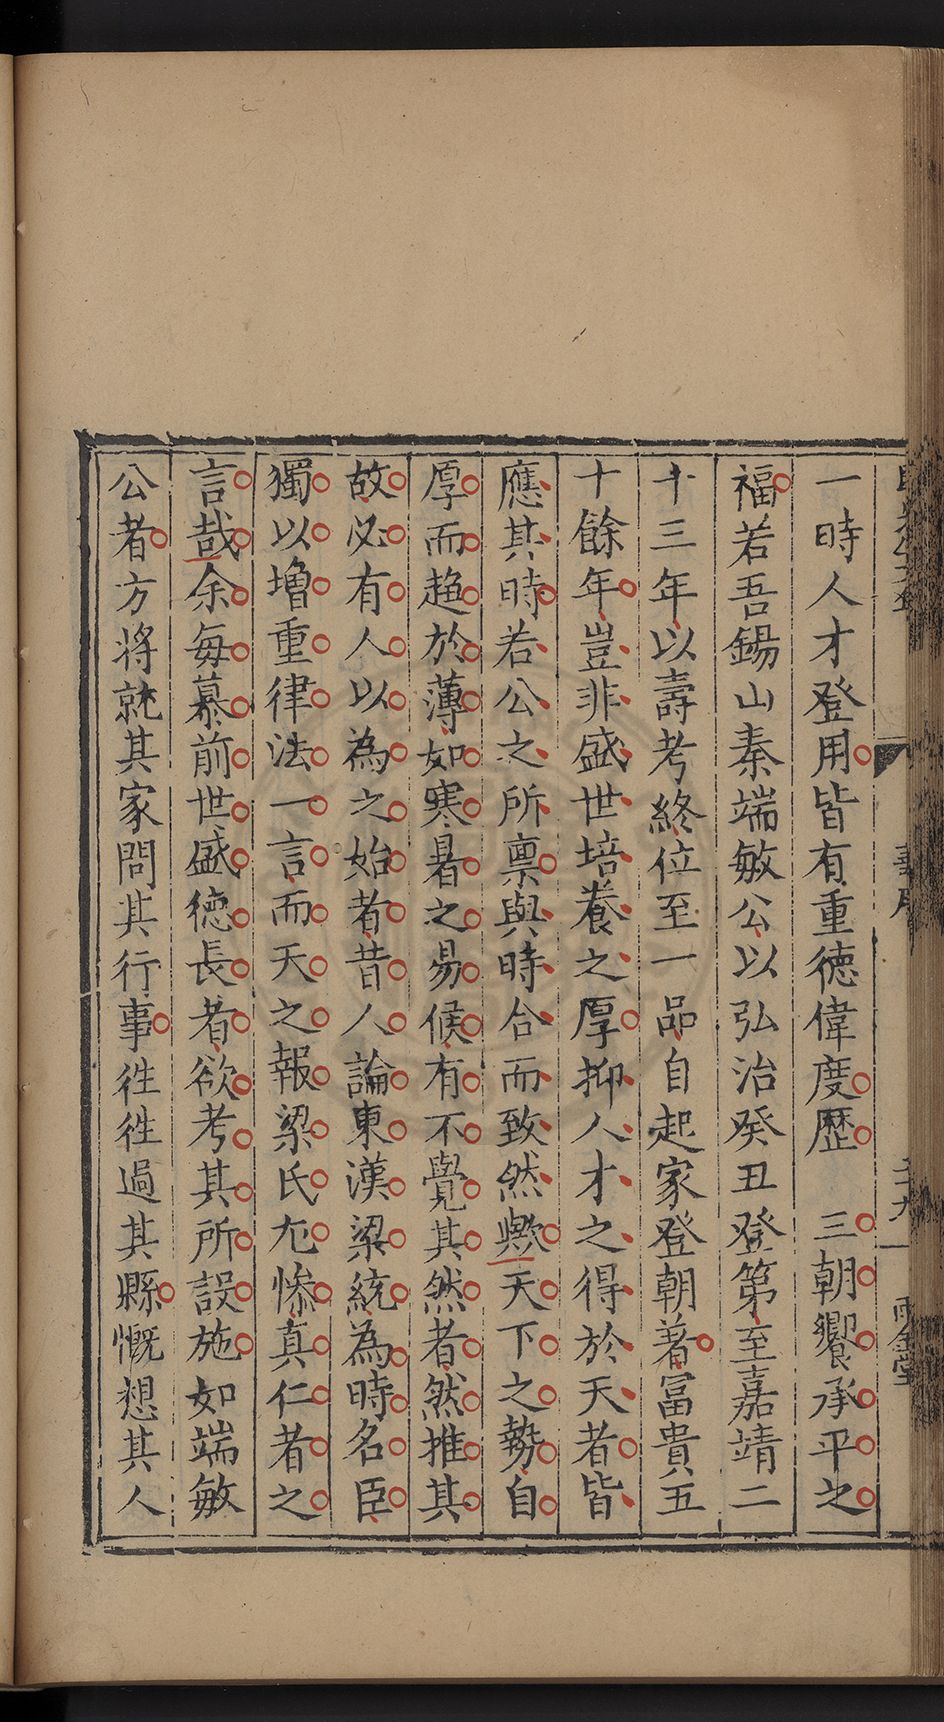 一時人才登用皆有重德偉度歷　三朝饗承平之
福若吾錫山秦端敏公以弘治癸丑登第至嘉靖二
十三年以壽考終位至一品自起家登朝著冨貴五
十餘年豈非盛世培養之厚抑人才之得於天者皆
應其時若公之所禀與時合而致然歟天下之勢自
厚而趋於薄如寒暑之易候有不覺其然者然推其
故必有人以為之始者昔人論東漢梁統為時名臣
獨以増重律法一言而天之報梁氏尤慘真仁者之
言哉余每慕前世盛德長者欲考其所設施如端敏
公者方将就其家問其行事徃徃過其縣慨想其人